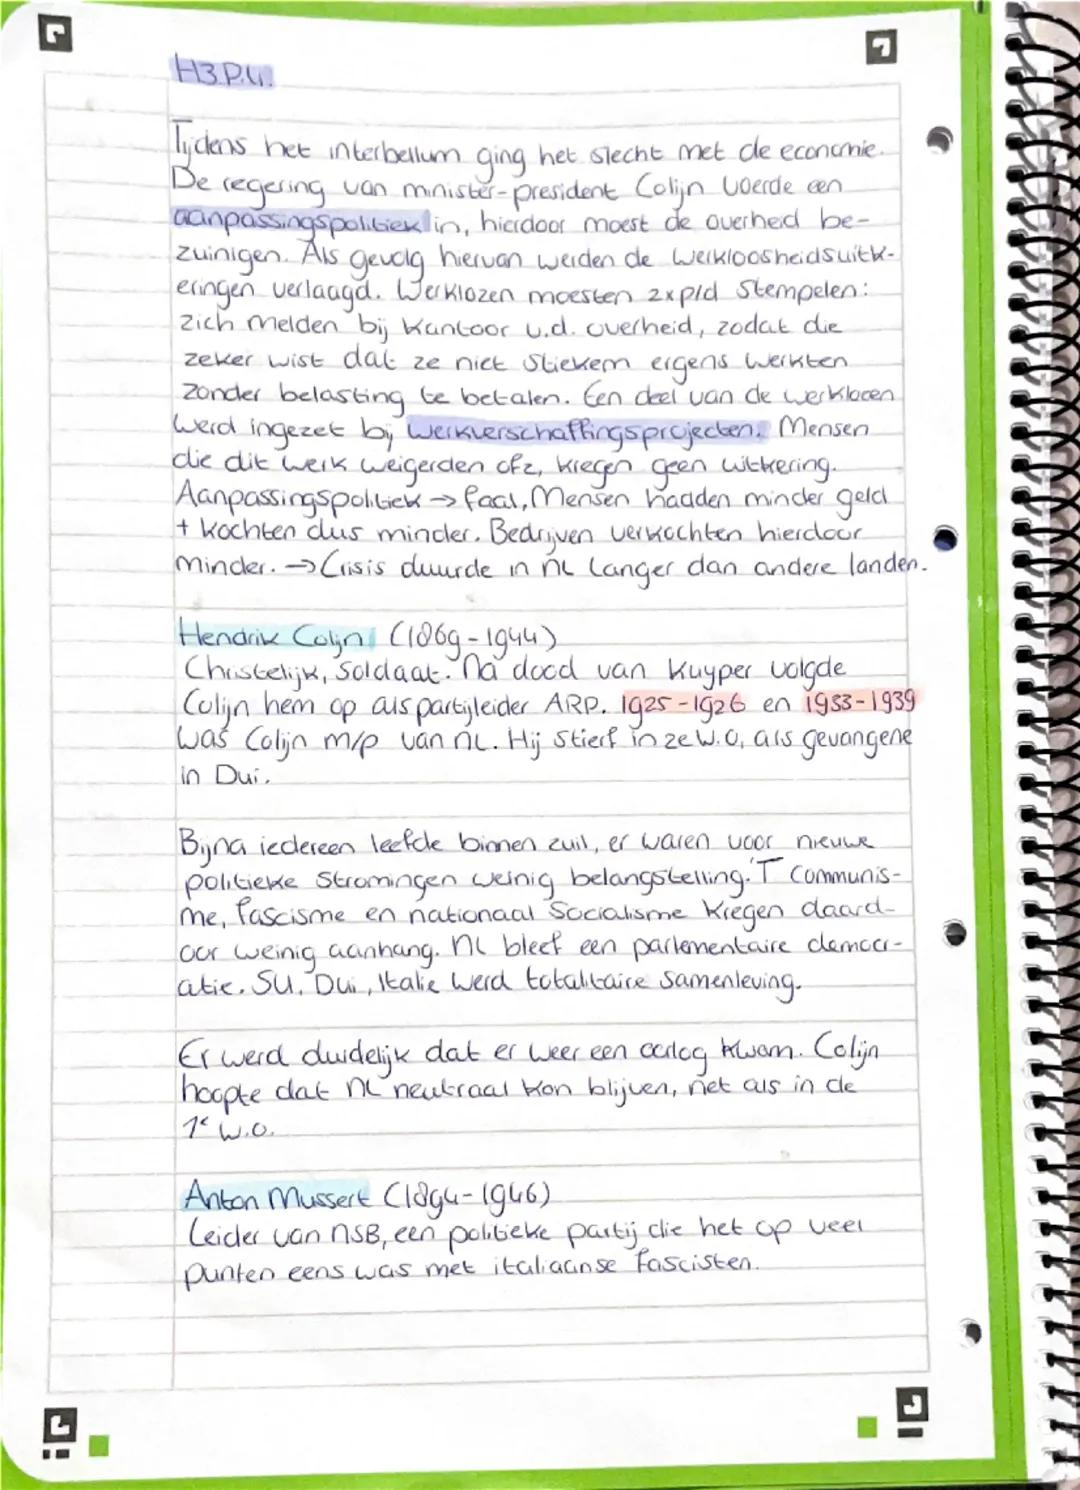 H3.P.4.
Tijdens het interbellum ging het slecht met de economie.
De regering van minister-president Colijn voerde een
aanpassingspolitiek in, hierdoor moest de overheid be-
zuinigen. Als gevolg hiervan werden de werkloosheidsuitk-
eringen verlaagd. Werklozen moesten 2x p/d stempelen:
zich melden bij kantoor v.d. overheid, zodat die
zeker wist dat ze niet stiekem ergens werkten
zonder belasting te betalen. Een deel van de werklozen
werd ingezet bij werkverschaffingsprojecten. Mensen
die dit werk weigerden ofz, kregen geen uitkering.
Aanpassingspolitiek → faal, Mensen hadden minder geld
+ kochten dus minder. Bedrijven verkochten hierdoor
minder. → Crisis duurde in NL langer dan andere landen.
Hendrik Colijn (1869-1944)
Christelijk, soldaat. Na dood van Kuyper volgde
Colijn hem op als partijleider ARP. 1925-1926 en 1933-1939
was Colijn m/p van NL. Hij stierf in 2e W.O, als gevangene
in Dui.
Bijna iedereen leefde binnen zuil, er waren voor nieuwe
politieke stromingen weinig belangstelling. 'T Communis-
me, fascisme en nationaal socialisme kregen daard-
oor weinig aanhang. NL bleef een parlementaire democr-
atie. SU, Dui, Italie werd totalitaire samenleving.
Er werd duidelijk dat er weer een oorlog kwam. Colijn
hoopte dat NL neutraal kon blijven, net als in de
1e W.O.
Anton Mussert (1894-1946)
Leider van NSB, een politieke partij die het op veel
punten eens was met italiaanse fascisten.